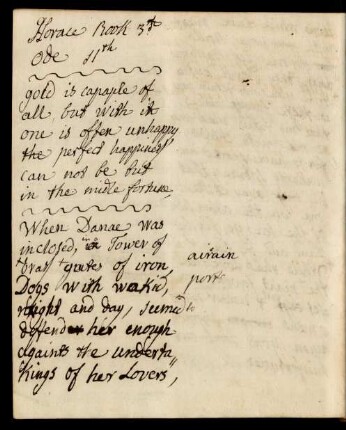 Horace Book 3d
Ode 11th
gold is capaple of
all but with it
one is often unhappy
the perfect happiness
can not be but
in the midle fortune,
When Danae was
inclosed, in Tower of
bras gates of iron,
airain
Dogs with wakid,
ports
Night and day, seemed to
defend her enough
againts the underta
kings of her Lovers,